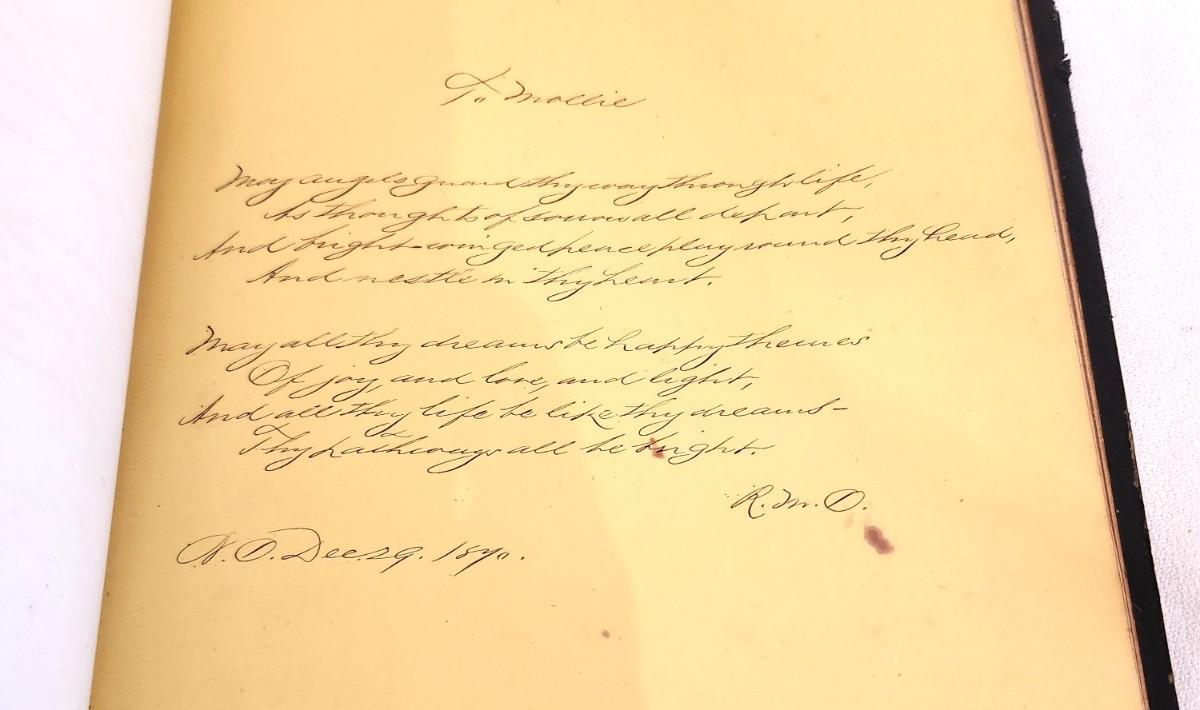 To Mollie
May angels guard thy way through life,
As thoughts of sorrow all depart,
And bright-winged peace play round thy head,
And nestle in thy heart.
May all thy dreams be happy themes
Of joy, and love, and light,
And all thy life be like thy dreams-
Thy pathways all be bright.
R. M. O.
N. O. Dec. 29. 1870.